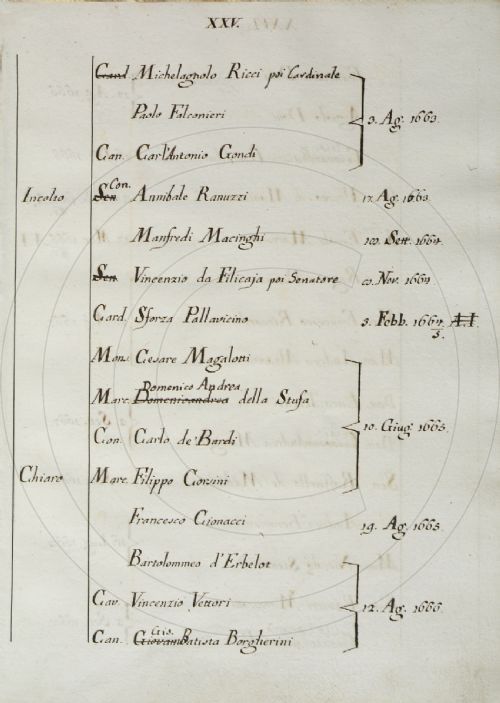 XXV.
Card Michelagnolo Ricci poi Cardinale
Paolo Falconieri
3. Ag. 1663.
Can. Carl'Antonio Gondi
Con.
Incolto Sen Annibale Ranuzzi 17. Ag. 1663.
Manfredi Macinghi Sett. 1664.
Sen Vincenzio da Filicaja poi Senatore Nov. 1664.
Card. Sforza Pallavicino 3. Febb. 1664. A.I
5.
Mons. Cesare Magalotti
Domenico Andrea
Marc. Domenicoandrea della Stufa
10. Giug. 1665.
Con. Carlo de' Bardi
Chiaro Marc. Filippo Corsini
Francesco Cionacci 19. Ag. 1665.
Bartolommeo d'Erbelot
Cav. Vincenzio Vettori 12. Ag. 1666.
Gio.
Can. Giovam Batista Borgherini